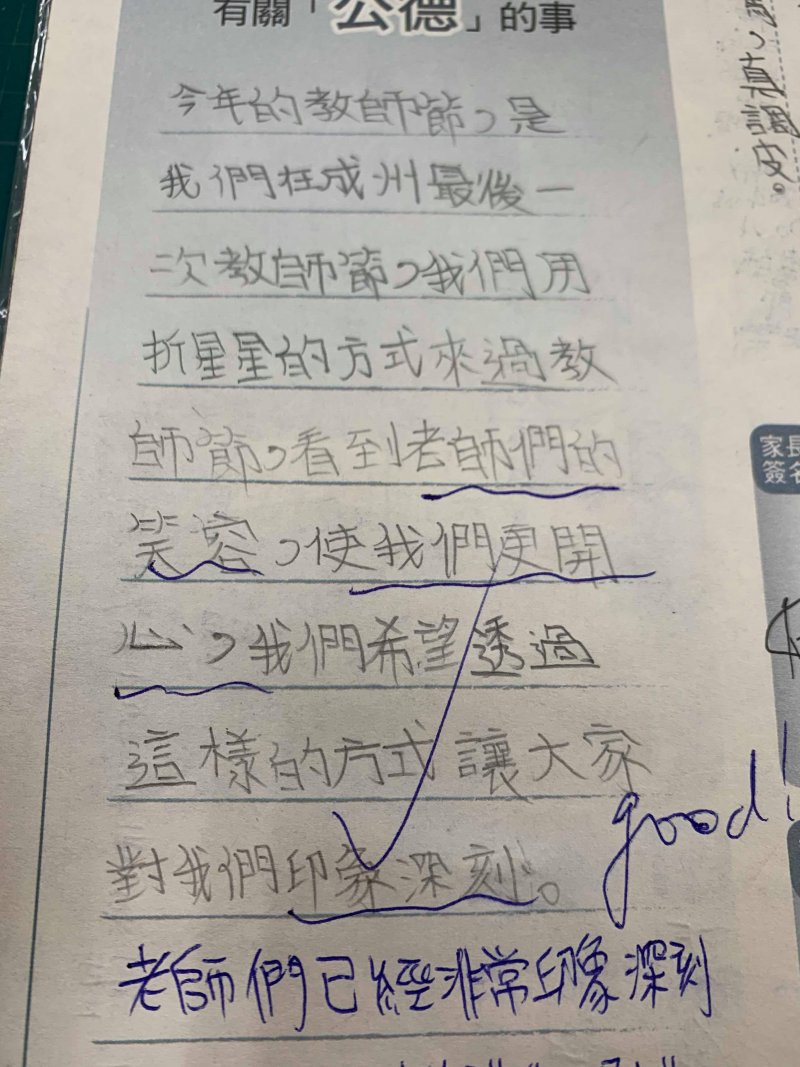 有關「公德」的事
今年的教師節，是
我們在成州最後一
次教師節，我們用
折星星的方式來過教
師節，看到老師們的
笑容，使我們更開
心，我們希望透過
這樣的方式讓大家
對我們印象深刻。
good!
老師們已經非常印象深刻
，真調皮。
家長
簽名